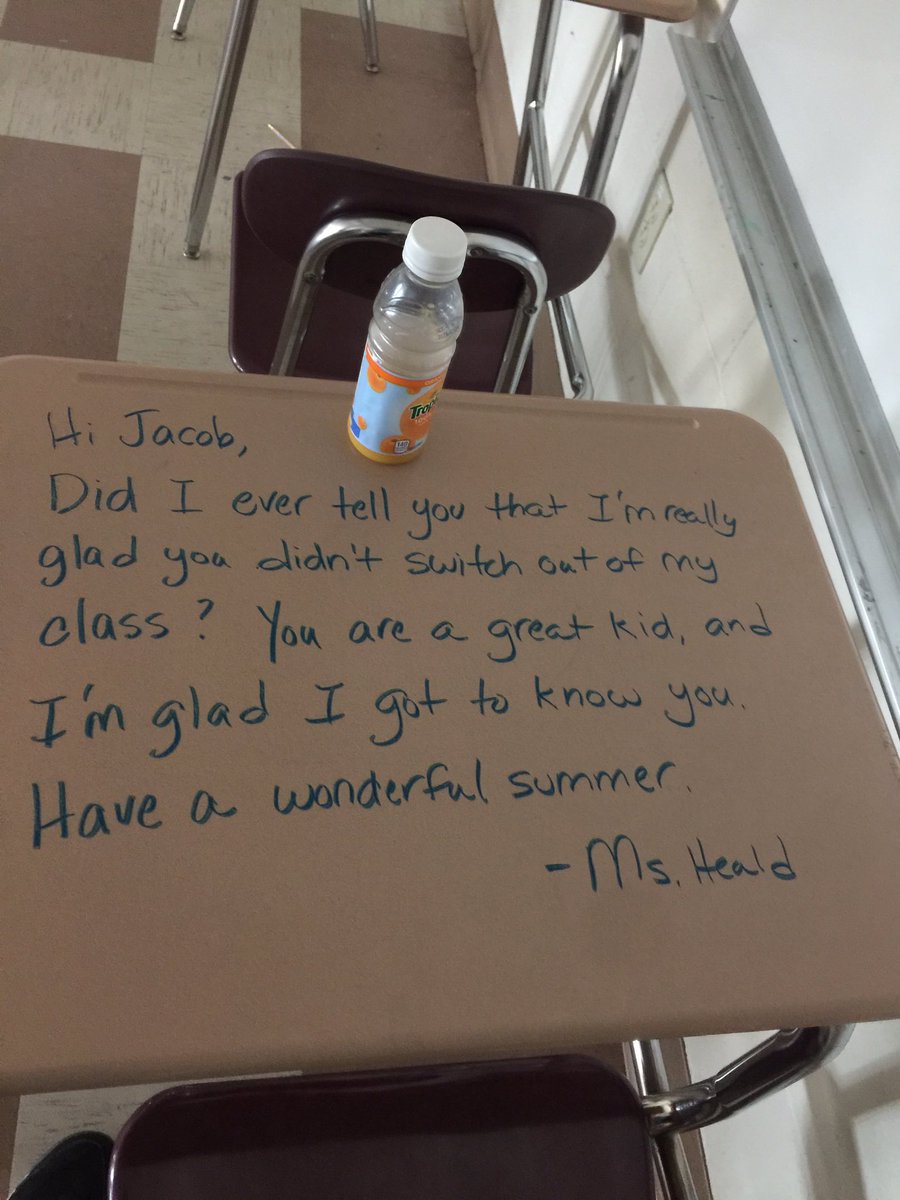 Hi Jacob,
Did I ever tell you that I'm really
glad you didn't switch out of my
class? You are a great kid, and
I'm glad I got to know you.
Have a wonderful summer.
-Ms. Heald
140